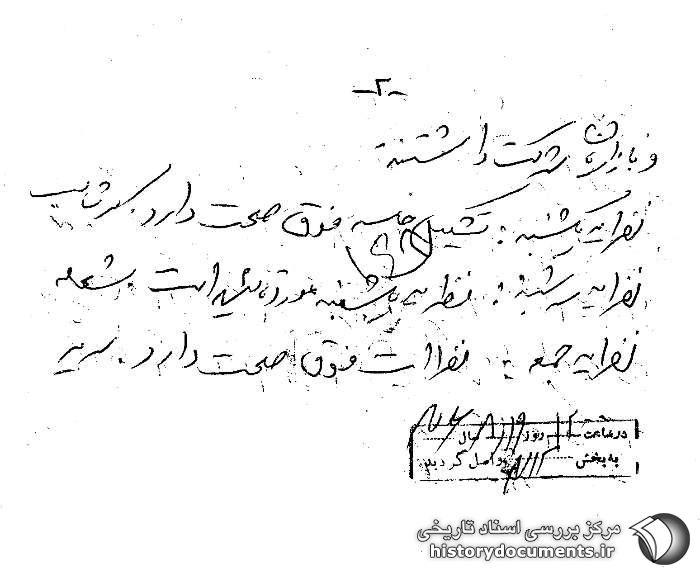 -۲-
و بازاریان شرکت داشتند
نظریه یکشنبه : تشکیل جلسه فوق صحت دارد.
نظریه سه شنبه : نظریه یکشنبه مورد تأیید است . شعله
نظریه جمعه : نظرات فوق صحت دارد .
در ساعت روز سال
به بخش واصل گردید
مرکز بررسی اسناد تاریخی
historydocuments.ir